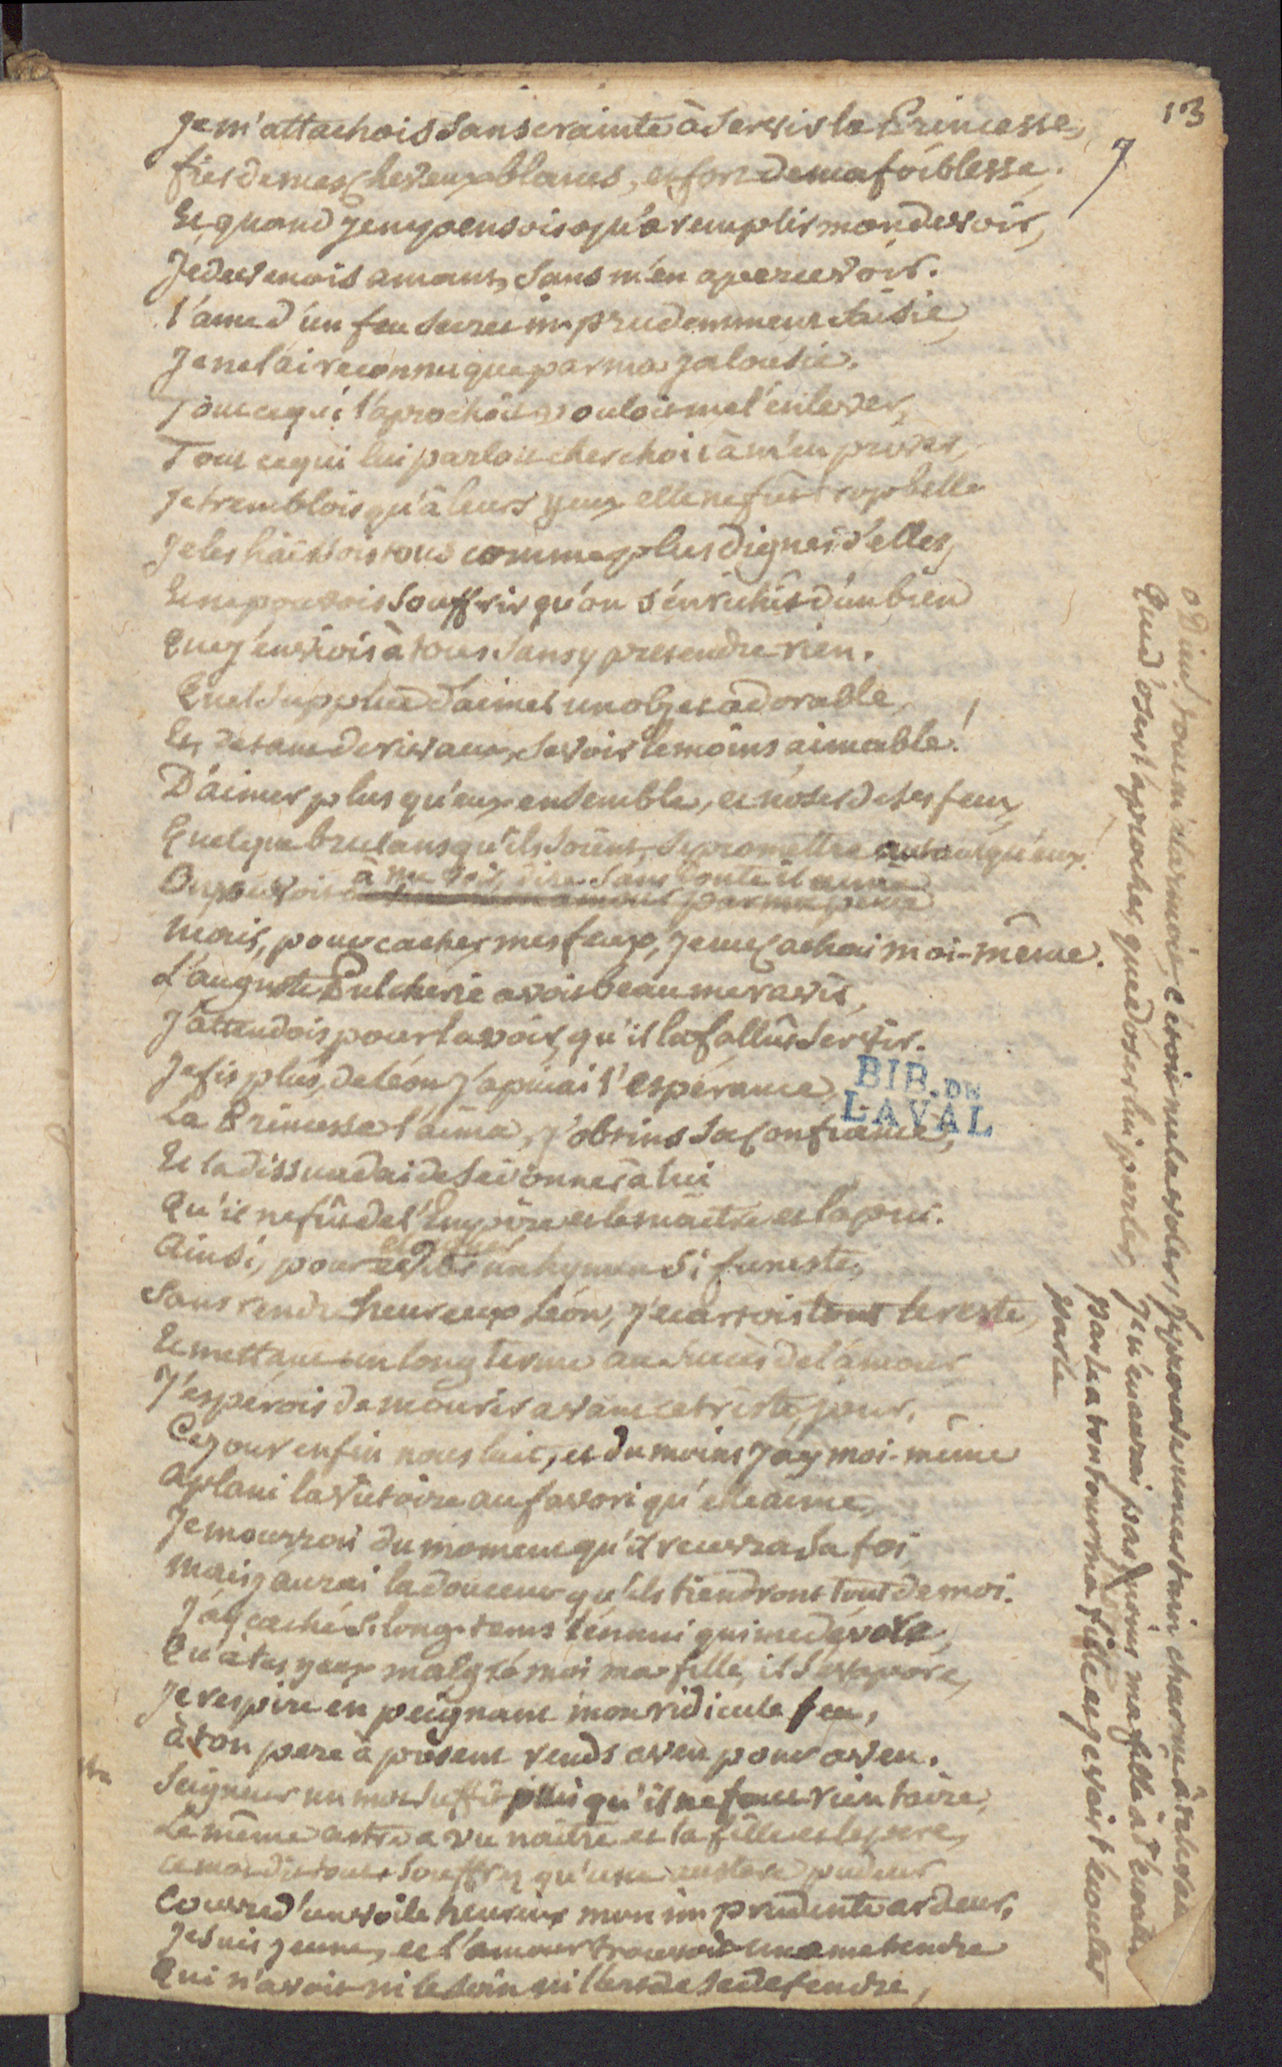 13
7
Je m'attachois sans crainte à servir la Princesse,
fier de mes cheveux blancs, et fort de ma foiblesse.
Et quand je ne pensois qu'à remplir mon devoir,
Je devenois amant, sans m'en apercevoir.
l'ame d'un feu secret imprudemment saisie,
Je ne l'ai reconnu que par ma jalousie.
Tout ce qui l'aprochoit vouloit me l'enlever,
Tout ce qui lui parloit cherchoit à m'en priver,
Je tremblois qu'à leurs yeux elle ne fût trop belle
Je les haïssois tous comme plus dignes d'elle,
Et ne pouvois souffrir qu'on s'enrichît d'un bien
Que j'enviois à tous sans y pretendre rien.
Quel supplice d'aimer un objet adorable,
Et de tant de rivaux se voir le moins aimable!
D'aimer plus qu'eux ensemble, et n'oser de ses feux,
Quelque brulans qu'ils soient, se promettre autant qu'eux!
On pouvoit à me voir, dire sans doute il aime
Mais, pour cacher mes feux, je me cachai moi-même.
L'auguste Pulcherie avoit beau me ravir,
J'attendois pour la voir, qu'il la fallût servir.
Je fis plus, de Léon j'apuiai l'espérance,
La Princesse l'aima, j'obtins sa confiance,
Et la dissuadai de se donner à lui
Qu'il ne fût de l'Empire et le maitre et l'apui.
Ainsi, pour éloigner un hymen si funeste,
Sans rendre heureux Léon, j'écartois tout le reste,
Et mettant un long terme au succès de l'amour
J'espérois de mourir avant ce triste jour.
Ce jour enfin nous luit, et du moins j'ay moi-même
Aplani la victoire au favori qu'elle aime,
Je mourrai du moment qu'il recevra sa foi
Mais j'aurai la douceur qu'ils tiendront tout de moi.
J'ay caché si long-tems l'ennui qui me dévore,
Qu'à tes yeux malgré moi ma fille, il s'évapore,
Je respire en peignant mon ridicule feu,
à ton pere à présent rends aveu pour aveu.
Seigneur un mot suffit puis qu'il ne faut rien taire,
Le même astre a vu naitre et la fille et le pere,
ce mot dit tout souffrez qu'une austere pudeur
Couvre d'un voile heureux mon imprudente ardeur,
Je suis jeune, et l'amour trouvoit une ame tendre
Qui n'avoit ni le soin ni l'art de se defendre,
o Dieu! tout m'alarmoit, c'étoit me la voler,
Quand l'oser l'aprocher, que d'oser lui parler,
BIB. DE
LAVAL